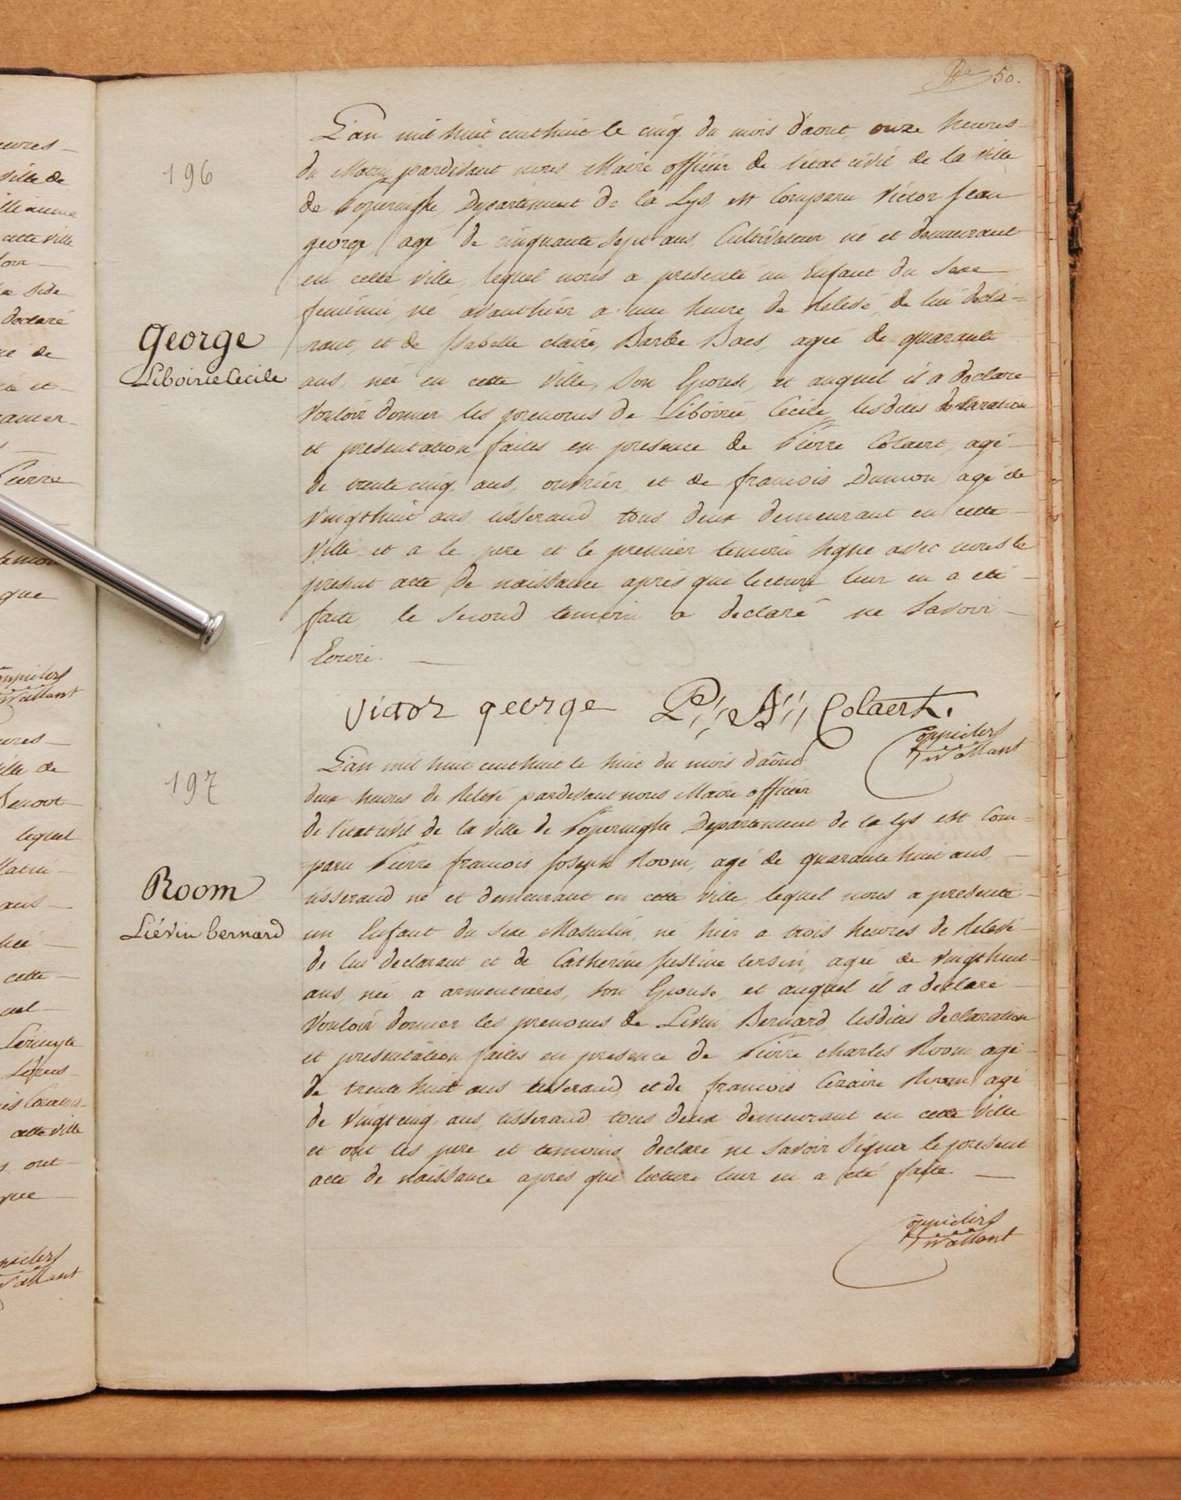 50.
196
L'an mil huit cent huit le cinq du mois d'aout onze heures
du Matin pardevant nous Maire officier de l'état civil de la ville
de Poperinghe Departement de la Lys est Comparu Victor Jean
george agé de cinquante sept ans, Cultivateur né et demeurant
en cette ville, lequel nous a presenté un Enfant du Sexe
feminin, né avanthier a une heure de Relevé, de lui décla-
rant, et de Isabelle claire, Barbe Baes agee de quarante
ans, née en cette Ville, Son Epouse, et auquel il a declaré
Vouloir donner les prenoms de Liboirie Cecile, lesdites declaration
et presentation faites en presence de Pierre Colaert, agé
de trente cinq ans, ouvrier et de francois Dumon agé de
Vingthuit ans tisserand tous deux demeurant en cette
Ville et a le pere et le premier temoin signe avec nous le
present acte de naissance apres que lecture leur en a eté
faite le Second temoin a declaré ne Savoir
Ecrire.
George
Liboirie Cecile
victor george
Colaert.
197
L'an mil huit cent huit le huit du mois d'aout
deux heures de Relevé pardevant nous Maire officier
de l'etat civil de la Ville de Poperinghe Departement de la Lys est Com-
paru Pierre francois Joseph Room, agé de quarante huit ans,
tisserand né et demeurant en cette ville, lequel nous a presenté
un Enfant du Sexe Masculin, né hier a trois heures de Relevé
de lui declarant et de Catherine Justine agee de Vingthuit
ans, née a armentieres, Son Epouse, et auquel il a declare
Vouloir donner les prenoms de Lievin Bernard, lesdites declaration
et presentation faites en presence de Pierre charles Room, agé
de trente huit ans tisserand, et de francois Room agé
de Vingtcinq ans tisserand tous deux demeurant en cette Ville
et ont les pere et temoins declaré ne Savoir Signer le present
acte de naissance apres que lecture leur en a eté faite
Room
Liévin bernard